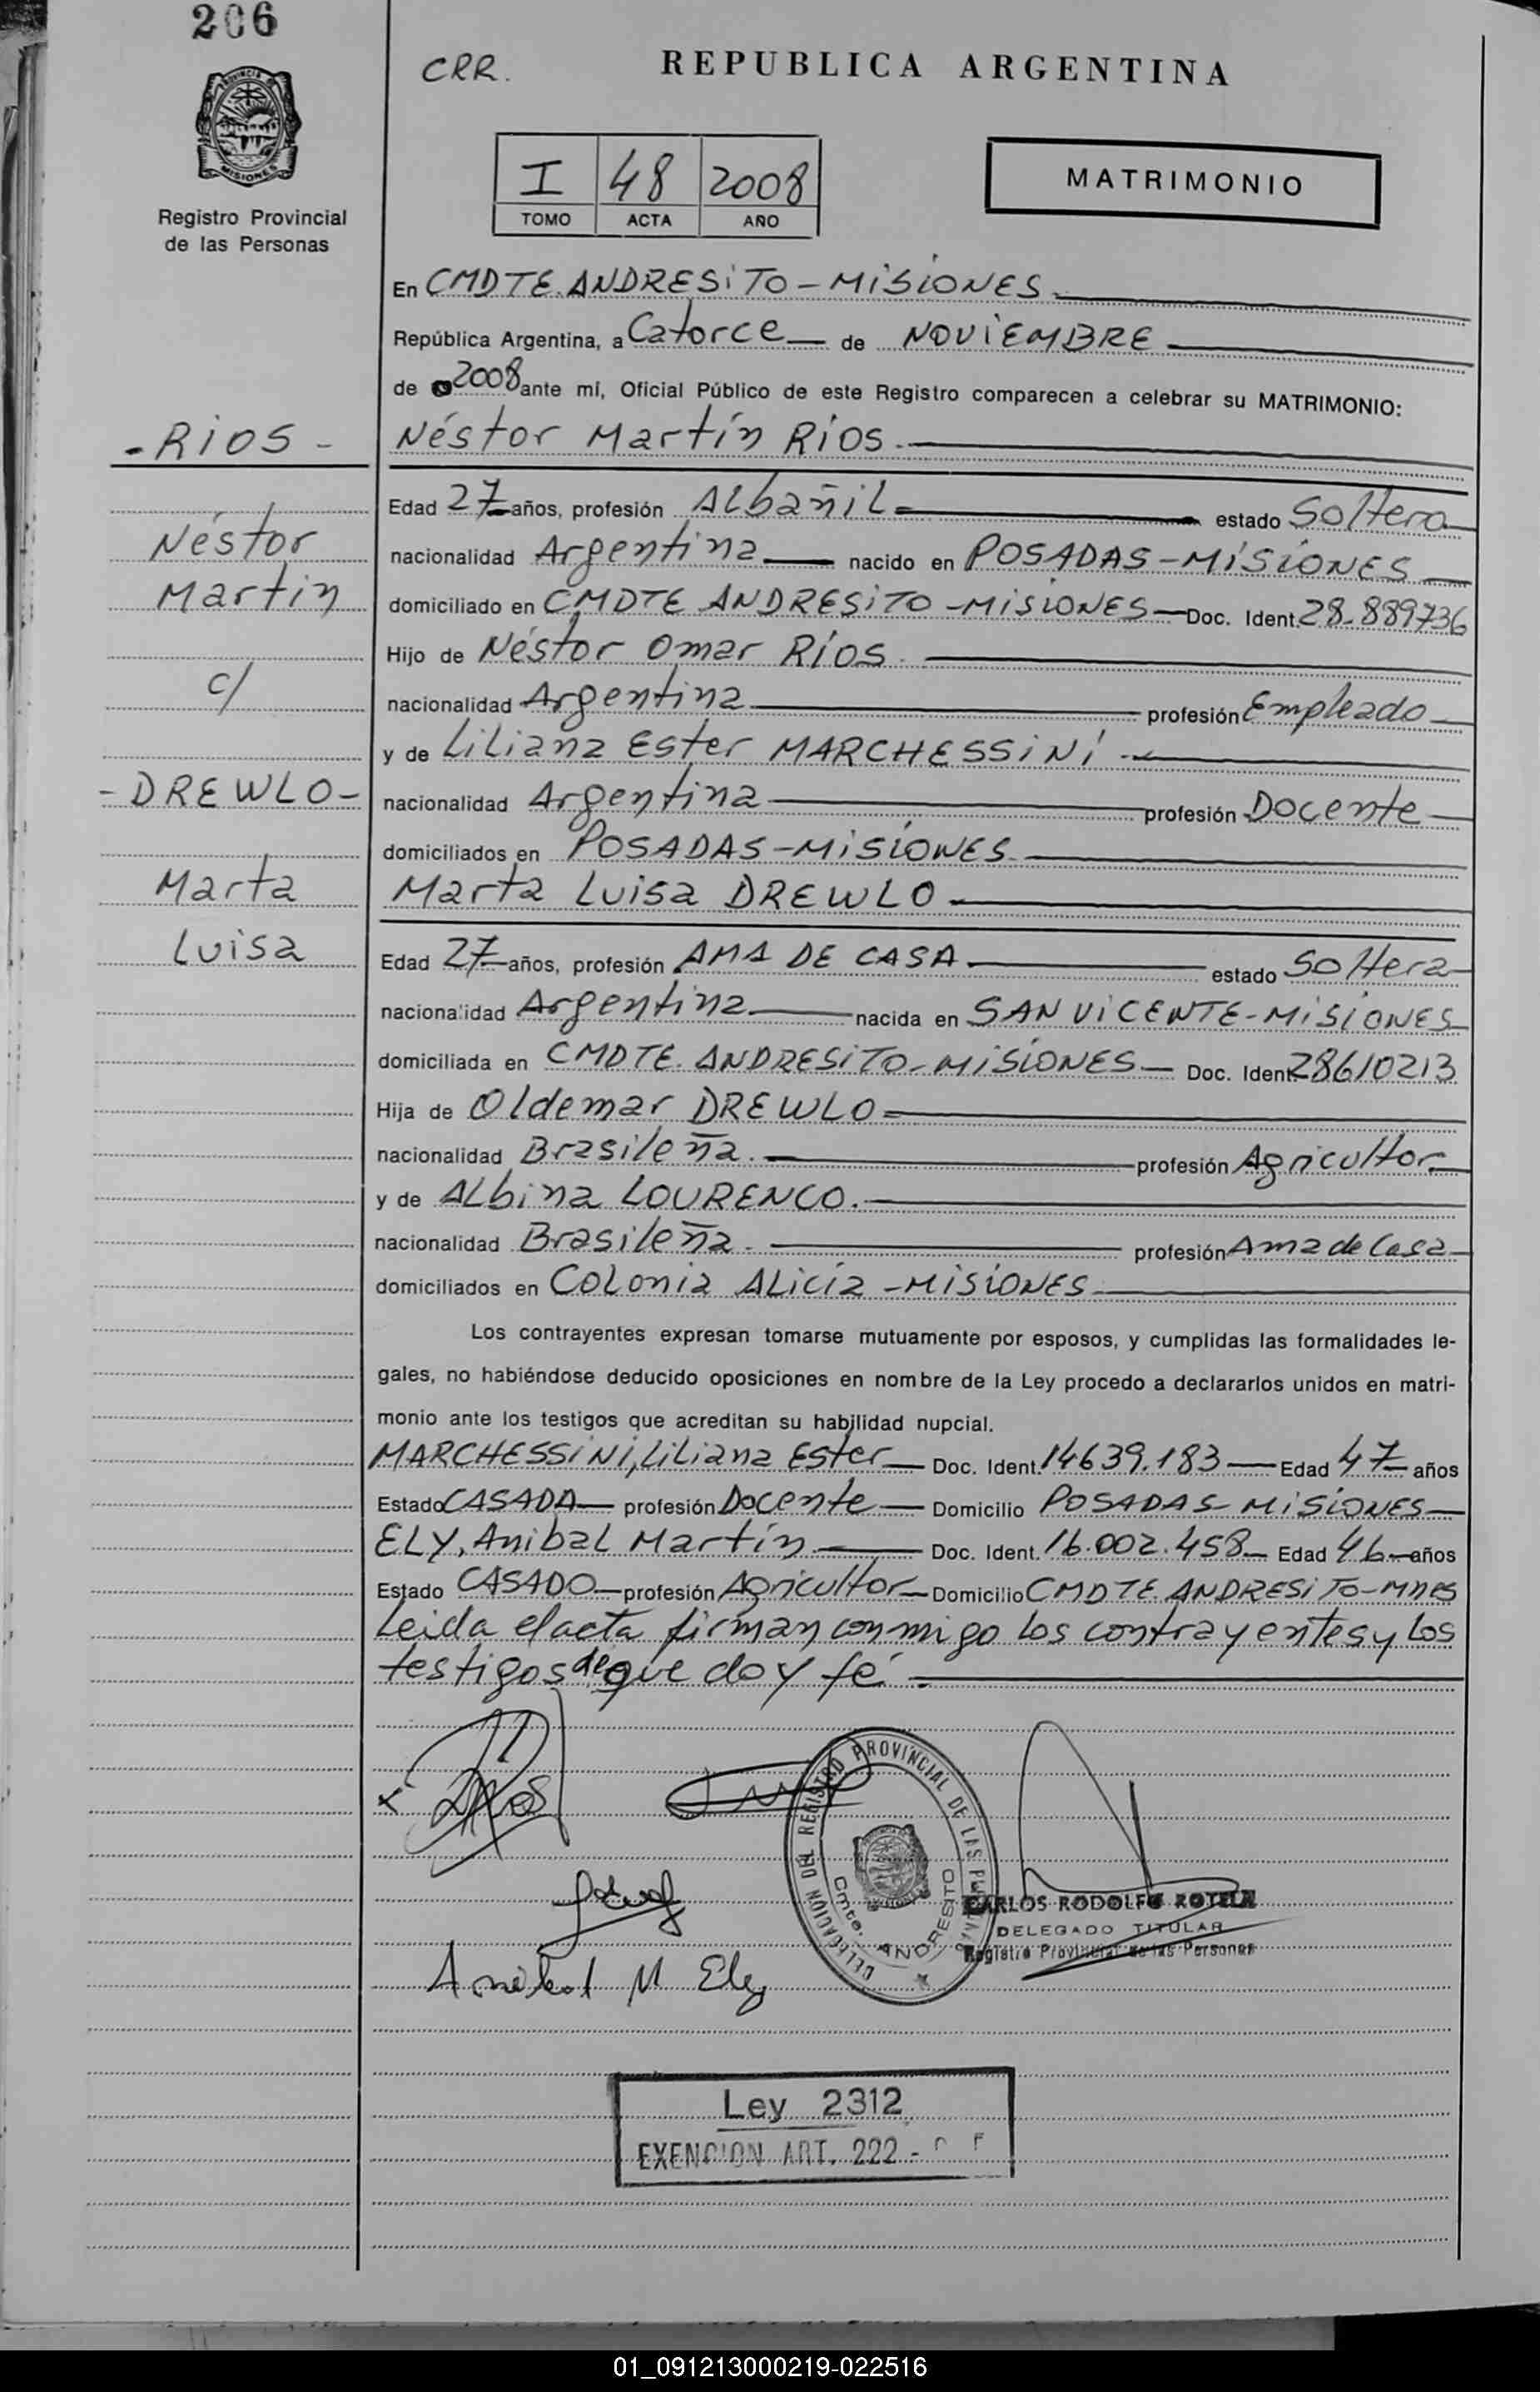 206
CRR.
REPUBLICA ARGENTINA
PROVINCIA DE
MISIONES
Registro Provincial
de las Personas
I 48 2008
TOMO ACTA AÑO
MATRIMONIO
En CMDTE. ANDRESITO - MISIONES
República Argentina, a Catorce de NOVIEMBRE
de 2008 ante mí, Oficial Público de este Registro comparecen a celebrar su MATRIMONIO:
- RIOS -
Néstor Martín RIOS.
Edad 27 años, profesión ALbañiL estado Soltero
Néstor
nacionalidad Argentina nacido en POSADAS - MISIONES
Martin
domiciliado en CMDTE ANDRESITO - MISIONES Doc. Ident. 28.889736
Hijo de Néstor Omar RIOS.
c/
nacionalidad Argentina profesión Empleado
y de Liliana Ester MARCHESSINI
- DREWLO -
nacionalidad Argentina profesión Docente
domiciliados en POSADAS - MISIONES
Marta
Marta Luisa DREWLO
Luisa
Edad 27 años, profesión AMA DE CASA estado Soltera
nacionalidad Argentina nacida en SAN VICENTE - MISIONES
domiciliada en CMDTE. ANDRESITO - MISIONES Doc. Ident. 28610213
Hija de Oldemar DREWLO
nacionalidad Brasileña. profesión Agricultor
y de ALbina LOURENCO.
nacionalidad Brasileña. profesión Ama de Casa
domiciliados en Colonia ALicia - MISIONES
Los contrayentes expresan tomarse mutuamente por esposos, y cumplidas las formalidades le-
gales, no habiéndose deducido oposiciones en nombre de la Ley procedo a declararlos unidos en matri-
monio ante los testigos que acreditan su habilidad nupcial.
MARCHESSINI, Liliana Ester Doc. Ident. 14639.183 Edad 47 años
Estado CASADA profesión Docente Domicilio POSADAS - MISIONES
ELY, Anibal Martín Doc. Ident. 16.002.458 Edad 46 años
Estado CASADO profesión Agricultor Domicilio CMDTE. ANDRESITO - MNES
Leida el acta firman conmigo los contrayentes y los
testigos de que doy fé.
DELEGACION DEL REGISTRO PROVINCIAL DE LAS PERSONAS
Cmte. ANDRESITO
CARLOS RODOLFO ROTELA
DELEGADO TITULAR
Registro Provincial de las Personas
Anibal M Ely
Ley 2312
EXENCION ART. 222 -
01_091213000219-022516